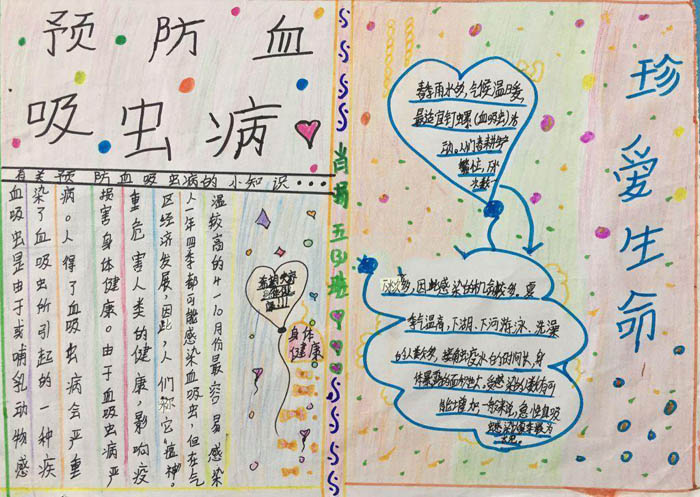 预防血
吸虫病
有关预防血吸虫病的小知识・・・
血吸虫是由于或哺乳动物感
染了血吸虫所引起的一种疾
病。人得了血吸虫病会严重
损害身体健康。由于血吸虫病严
重危害人类的健康,影响疫
区经济发展,因此,人们称它“瘟神”。
人一年四季都可能感染血吸虫,但在气
温较高的4-10月份最容易感染
身体
健康
五(3)班
春季雨水多,气候温暖,
最适宜钉螺(血吸虫)活
动。人们春耕生产
繁忙,下水
次数
多,因此感染的机会较多。夏
季气温高,下湖、下河游泳、洗澡
的人数多,接触疫水的时间长,身
体暴露的面积也大,感染的人数有可
能增加一般来说,急性血吸
珍爱生命